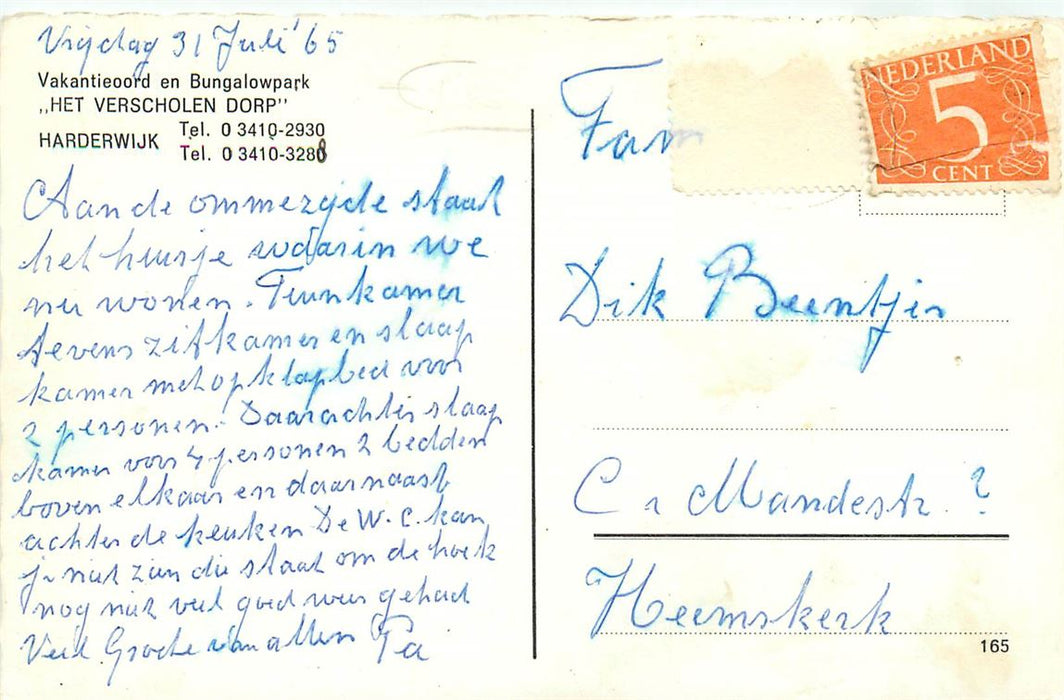 Vrijdag 31 Juli '65
Vakantieoord en Bungalowpark
„HET VERSCHOLEN DORP"
HARDERWIJK Tel. 0 3410-2930
Tel. 0 3410-3288
Aan de ommezijde staat
het huisje waarin we
nu wonen. Tuinkamer
tevens zitkamer en slaap
kamer met opklapbed voor
2 personen. Daarachter slaap
kamer voor 4 personen 2 bedden
boven elkaar en daarnaast
achter de keuken De W.C. kan
je niet zien die staat om de hoek
nog niet veel goed weer gehad
Veel Groete van allen Pa
NEDERLAND
5
CENT
Fam
Dik Beentjes
C v Mandestr ?
Heemskerk
165